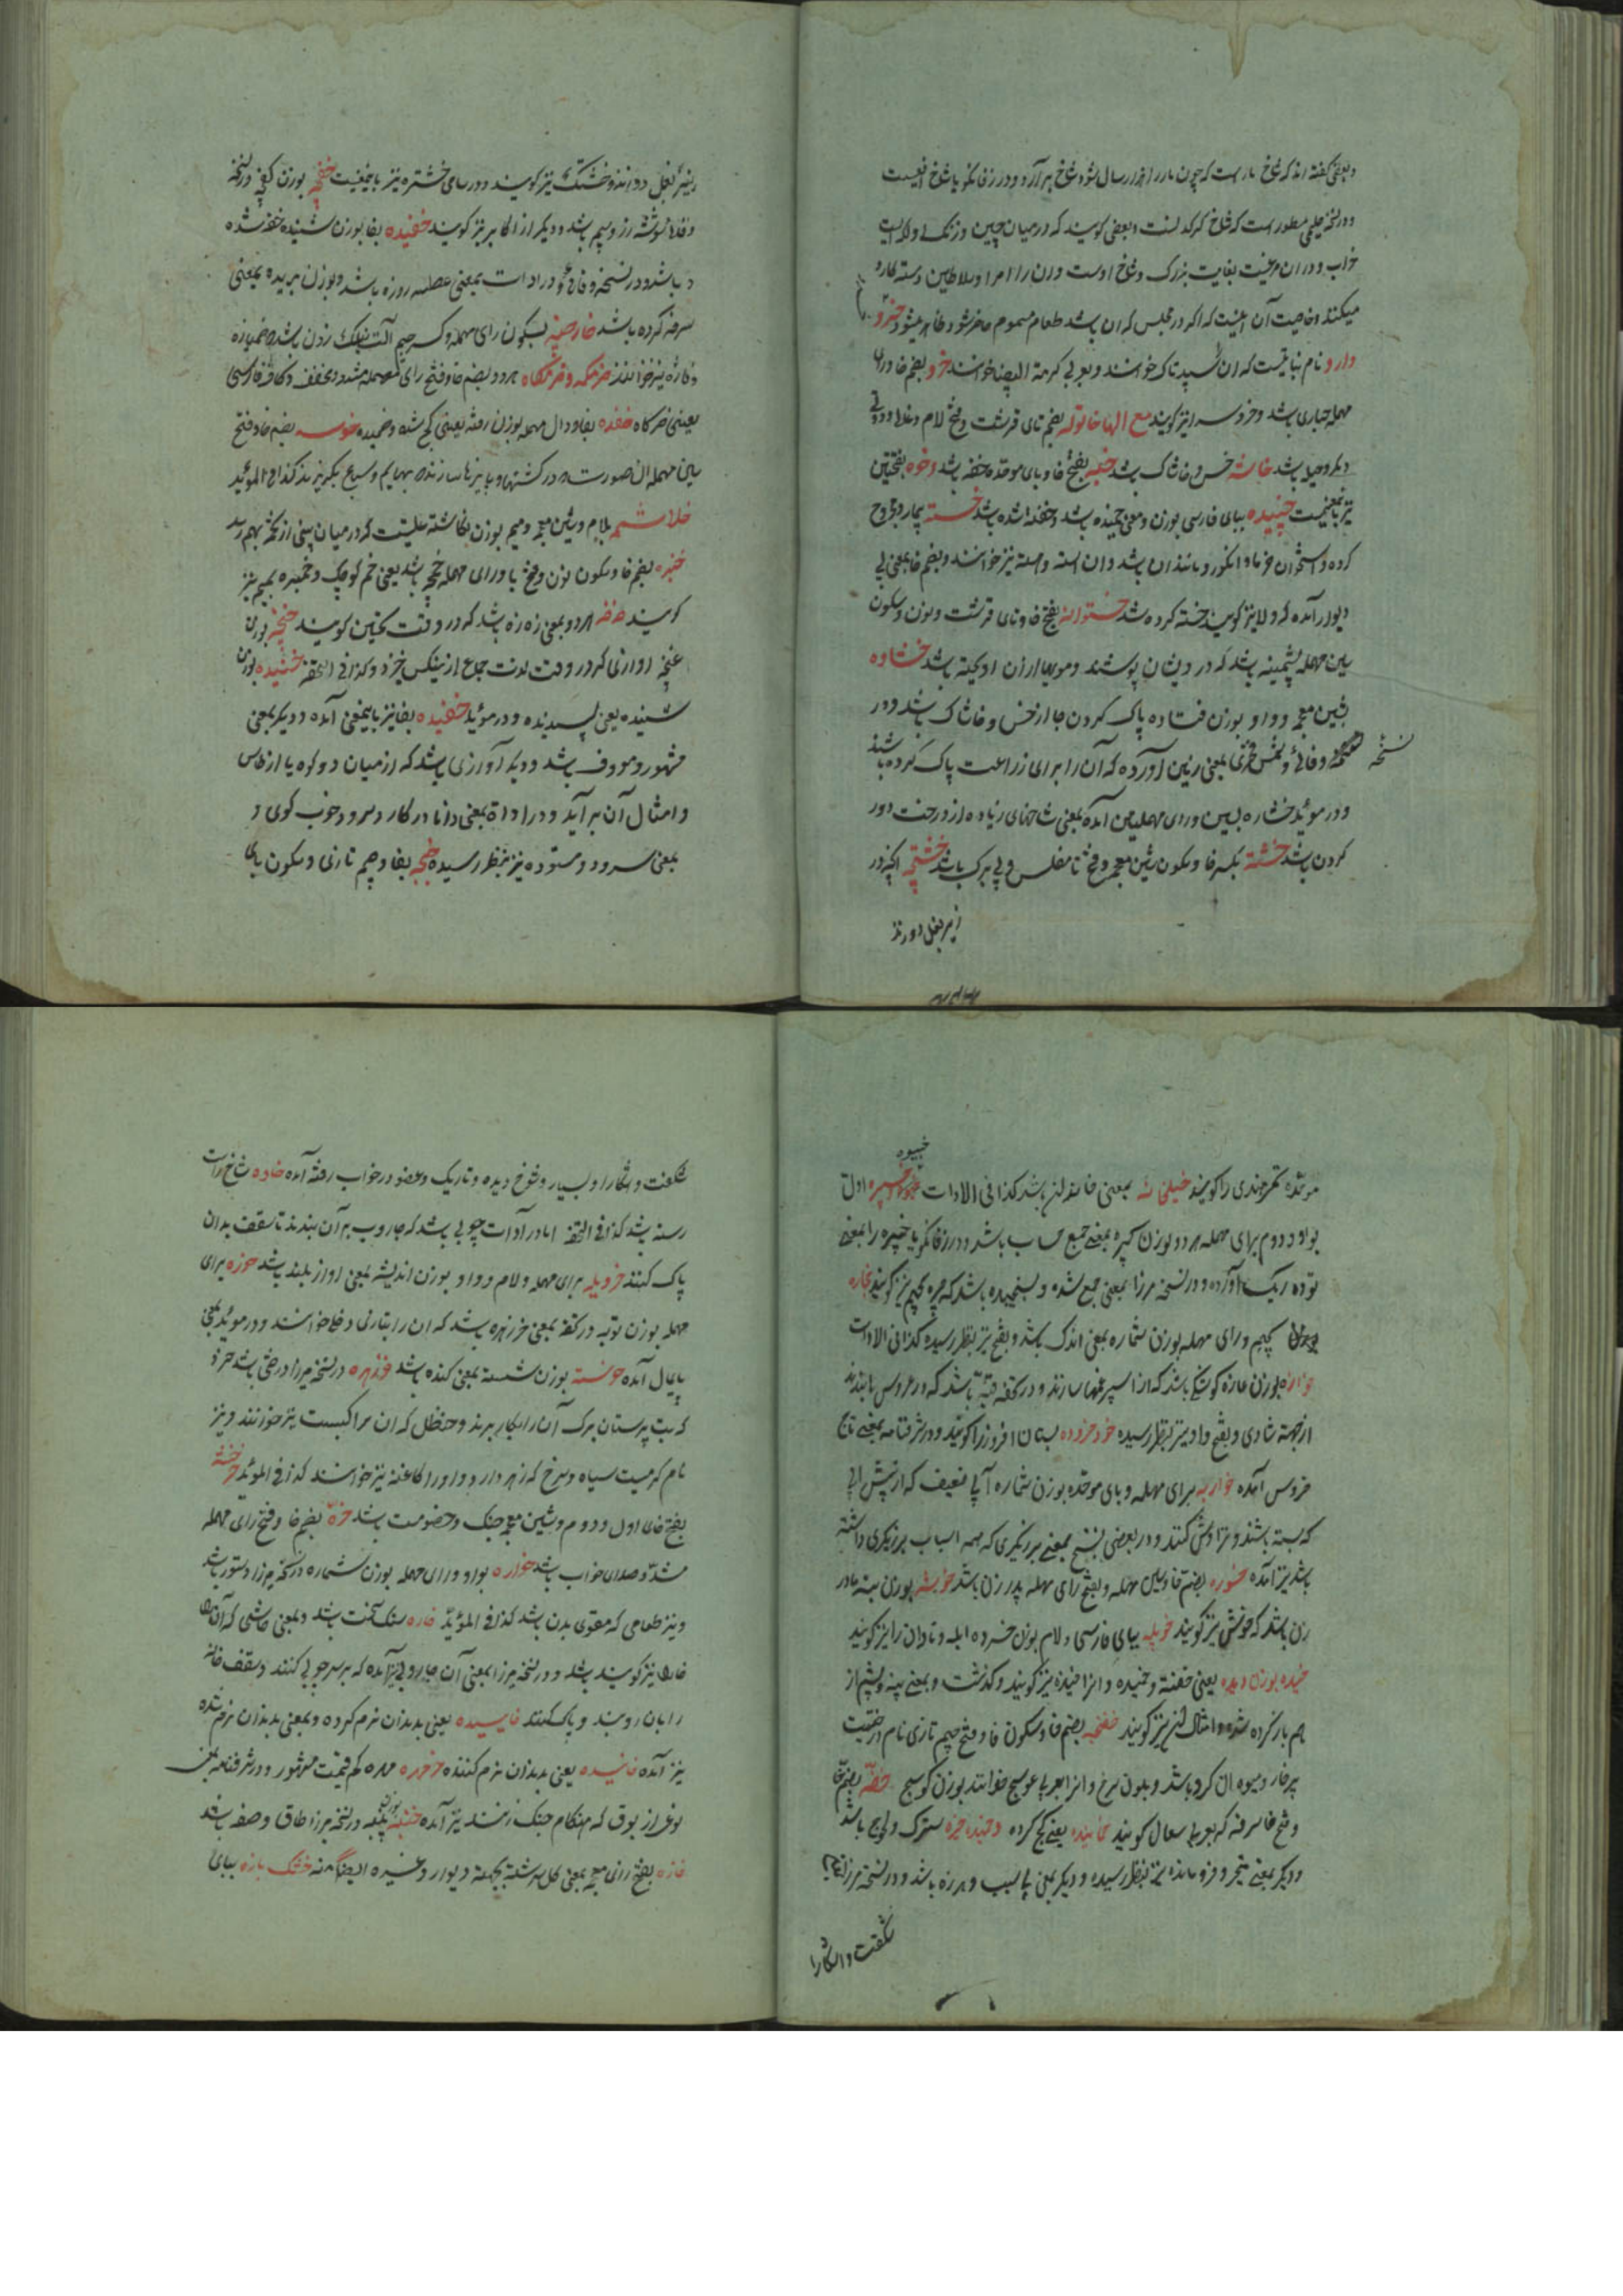 و بعضی گفته اند که شاخ مار است که چون مار را هزار سال شود شاخ برآرد و در زفانکویا شاخ افعیست
و در نسخه حلیمی مسطور است که شاخ کرکدنست و بعضی کویند که در میان چین و زنک ولایتیست
خراب و در ان مرغیست بغایت بزرک و شاخ اوست و ان را امرا و سلاطین دسته کارد
میکنند و خاصیت آن اینست که اکر در مجلس که ان باشد طعام مسموم حاضر شود ظاهر میشود خسرو
دارو نام نباتیست که ان سپید تاک خوانند و بعربی کرمة البیضا خوانند خرو بضم خا و رای
مهمله خبازی باشد و خروس را نیز کویند مع الهاء خاتوله بضم تای قرشت و فتح لام دغا و دورنی
و مکر و حیله باشد خاشه خس و خاشاک باشد خبه بفتح خا و بای موحده خفه باشد و خوه بفتحتین
نیز باینمعنیست خپیده ببای فارسی بوزن و معنی خمیده باشد و خفته شده باشد خسته بیمار و مجروح
کرده و استخوان خرما و انکور و مانند ان باشد و ان استه و هسته نیز خوانند و بضم خا بمعنی پی
دیوار آمده که و لا نیز کویند خسته کرده شد خستوانه بفتح خا و تای قرشت و نون و سکون
سین مهمله پشمینه باشد که درویشان پوشند و مویها از ان اویخته باشد خشاوه
بشین معجمه و واو بوزن فتاده پاک کردن جا از خس و خاشاک باشد و در
نسخه وفائی و شمس فخری بمعنی زمین آورده که آن را برای زراعت پاک کرده باشند
و در موید خشاره بسین و رای مهملتین آمده بمعنی شاخهای زیاده از درخت دور
کردن باشد خشته بکسر خا و سکون شین معجمه و فتح تا مفلس و بی برک باشد خشتچه انچه در
زیر بغل دوزند
زیر بغل دوزند و خشتک نیز کویند و در سامی خشتره نیز باینمعنیست خفچه بوزن کفچه در نسخه
وفائی شوشه زر و سیم باشد و دیکر از اکابر نیز کویند خفیده بفا بوزن شنیده خفه شده
باشد و در نسخه وفائی و در ادات بمعنی عطسه زده باشد و بوزن بریده بمعنی
سرفه کرده باشد خارجینه بسکون رای مهمله و کسر جیم آلت باشد خمیازه
و فاژه نیز خوانند خرمکه و خرمکاه هردو بضم خا و فتح رای مهمله مشدد و مخفف و کاف فارسی
یعنی خرکاه خفده بفا و دال مهمله بوزن رفته یعنی کج شده و خمیده خوسه بضم خا و فتح
سین مهمله ان صورت که در کشتها و پالیزها سازند بهایم و سباع بکریزند کذا فی المؤید
خلاشمه بلام و شین معجمه و میم بوزن نکاشته علتیست که در میان بینی از نخمه بهم رسد
خنبره بضم خا و سکون نون و فتح با و رای مهمله خمچه باشد یعنی خم کوچک و خمبره بمیم نیز
کویند خه خه هردو بمعنی زه زه باشد که در وقت تحسین کویند خنجه بوزن
غنچه آوازی که در وقت لذت جماع از بینی کس خیزد و کذا فی التحفه خنیده بوزن
شنیده یعنی پسندیده و در موید خفیده بفا نیز باینمعنی آمده و دیکر بمعنی
مشهور و معروف باشد و دیکر آوازی باشد که از میان دو کوه یا از طاس
و امثال آن برآید و در اداة بمعنی دانا در کار و سرود خوب کوی و
بمعنی سرود و ستوده نیز بنظر رسیده خجه بفا و جیم تازی و سکون بای
موحده تمر هندی را کویند خیلخانه بمعنی خاندان باشد کذا فی الادات خیبوه خیبره اول
بواو و دوم برای مهمله هردو بوزن کبیره بمعنی جمع حساب باشد و در زفانکویا خیبره را بمعنی
توده ریک آورده و در نسخه مرزا بمعنی جمع شده و بسنجیده باشد که جیم نیز کویند خجاره
بجیم و رای مهمله بوزن شماره بمعنی اندک باشد و بفتح نیز بنظر رسیده کذا فی الادات
خوازه بوزن غازه کوشکی باشد که از اسپرغمها سازند و در تحفه قبه باشد که در عروسی بندند
از جهت شادی و بفتح واو نیز بنظر رسیده خود خروده بستان افروز را کویند و در شرفنامه بمعنی تاج
خروس آمده خواربه برای مهمله و بای موحده بوزن شماره آبی ضعیف که از پیش آبی
که بسته باشند و تراوش کند و در بعضی نسخ بمعنی برزیکری که همه اسباب برزیکری داشته
باشد نیز آمده خسوره بضم خا و سین مهمله و بفتح رای مهمله پدر زن باشد خوشه بوزن بسته مادر
زن باشد که خوش نیز کویند خویله ببای فارسی و لام بوزن خسرده ابله و نادان را نیز کویند
خیده بوزن دیده یعنی خفته و خمیده و انرا خنیده نیز کویند و کذشت و بمعنی پنبه و پشم از
هم باز کرده شده و امثال ان نیز کویند خفجه بضم خا و سکون فا و فتح جیم تازی نام درختیست
پر خار و میوه ان کرد باشد و بلون سرخ و انرا بعربی عوسج خوانند بوزن کوسج خفه بضم خا
و فتح فا سرفه که بعربی سعال کویند خمانیده یعنی کج کرده و خمیده خیره سترک و لجوج باشد
و دیکر بمعنی متحیر و فرو مانده نیز بنظر رسیده و دیکر بمعنی بی سبب و هرزه باشد و در نسخه مرزا
شکفت و آشکارا
شکفت و آشکارا و بسیار و شوخ دیده و تاریک و عضو در خواب رفته آمده خاده شاخ راست
رسته باشد کذا فی التحفه اما در آدات چوبی باشد که جاروب بر آن بندند تا سقف بدان
پاک کنند خرویله برای مهمله و لام و واو بوزن اندیشه بمعنی آواز بلند باشد خوزه برای
مهمله بوزن توبه در تحفه بمعنی خرزهره باشد که ان را بتازی دفلی خوانند و در موید بمعنی
پایمال آمده خوسته بوزن شسته بمعنی کنده باشد خرزهره در نسخه میرزا درختی باشد
که بت پرستان برک آن را بکار برند و حنظل که ان را کبست نیز خوانند و نیز
نام کرمیست سیاه و سرخ که زهر دارد و او را کاغنه نیز خوانند کذا فی المؤید خرخشه
بفتح خای اول و دوم و شین معجمه جنک و خصومت باشد خره بضم خا و فتح رای مهمله
مشدد صدای خواب باشد خواره بواو و رای مهمله بوزن شماره در نسخه میرزا دستور باشد
و نیز طعامی که مقوی بدن باشد کذا فی المؤید خاره سنک سخت باشد و بمعنی قماشی که آن را
خارا نیز کویند باشد و در نسخه مرزا بمعنی آن جاروبی نیز آمده که بر سر چوبی کنند و سقف خانه
را بان روبند و پاک کنند خاییده یعنی بدندان نرم کرده و بمعنی بدندان نرم شده
نیز آمده خاینده یعنی بدندان نرم کننده خرمهره مهره کم قیمت مشهور و در شرفنامه بمعنی
نوعی از بوق که هنکام جنک زنند نیز آمده خنبه بوزن پنبه در نسخه مرزا طاق و صفه باشد
خازه بفتح زای معجمه بمعنی کل سرشته بجهت دیوار و غیره ایضا خشک بازه ببای